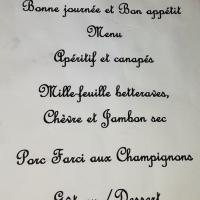 Bonne journée et Bon appétit
Menu
Apéritif et canapés
Mille-feuille betteraves,
Chèvre et Jambon sec
Porc Farci aux Champignons
/Dessert